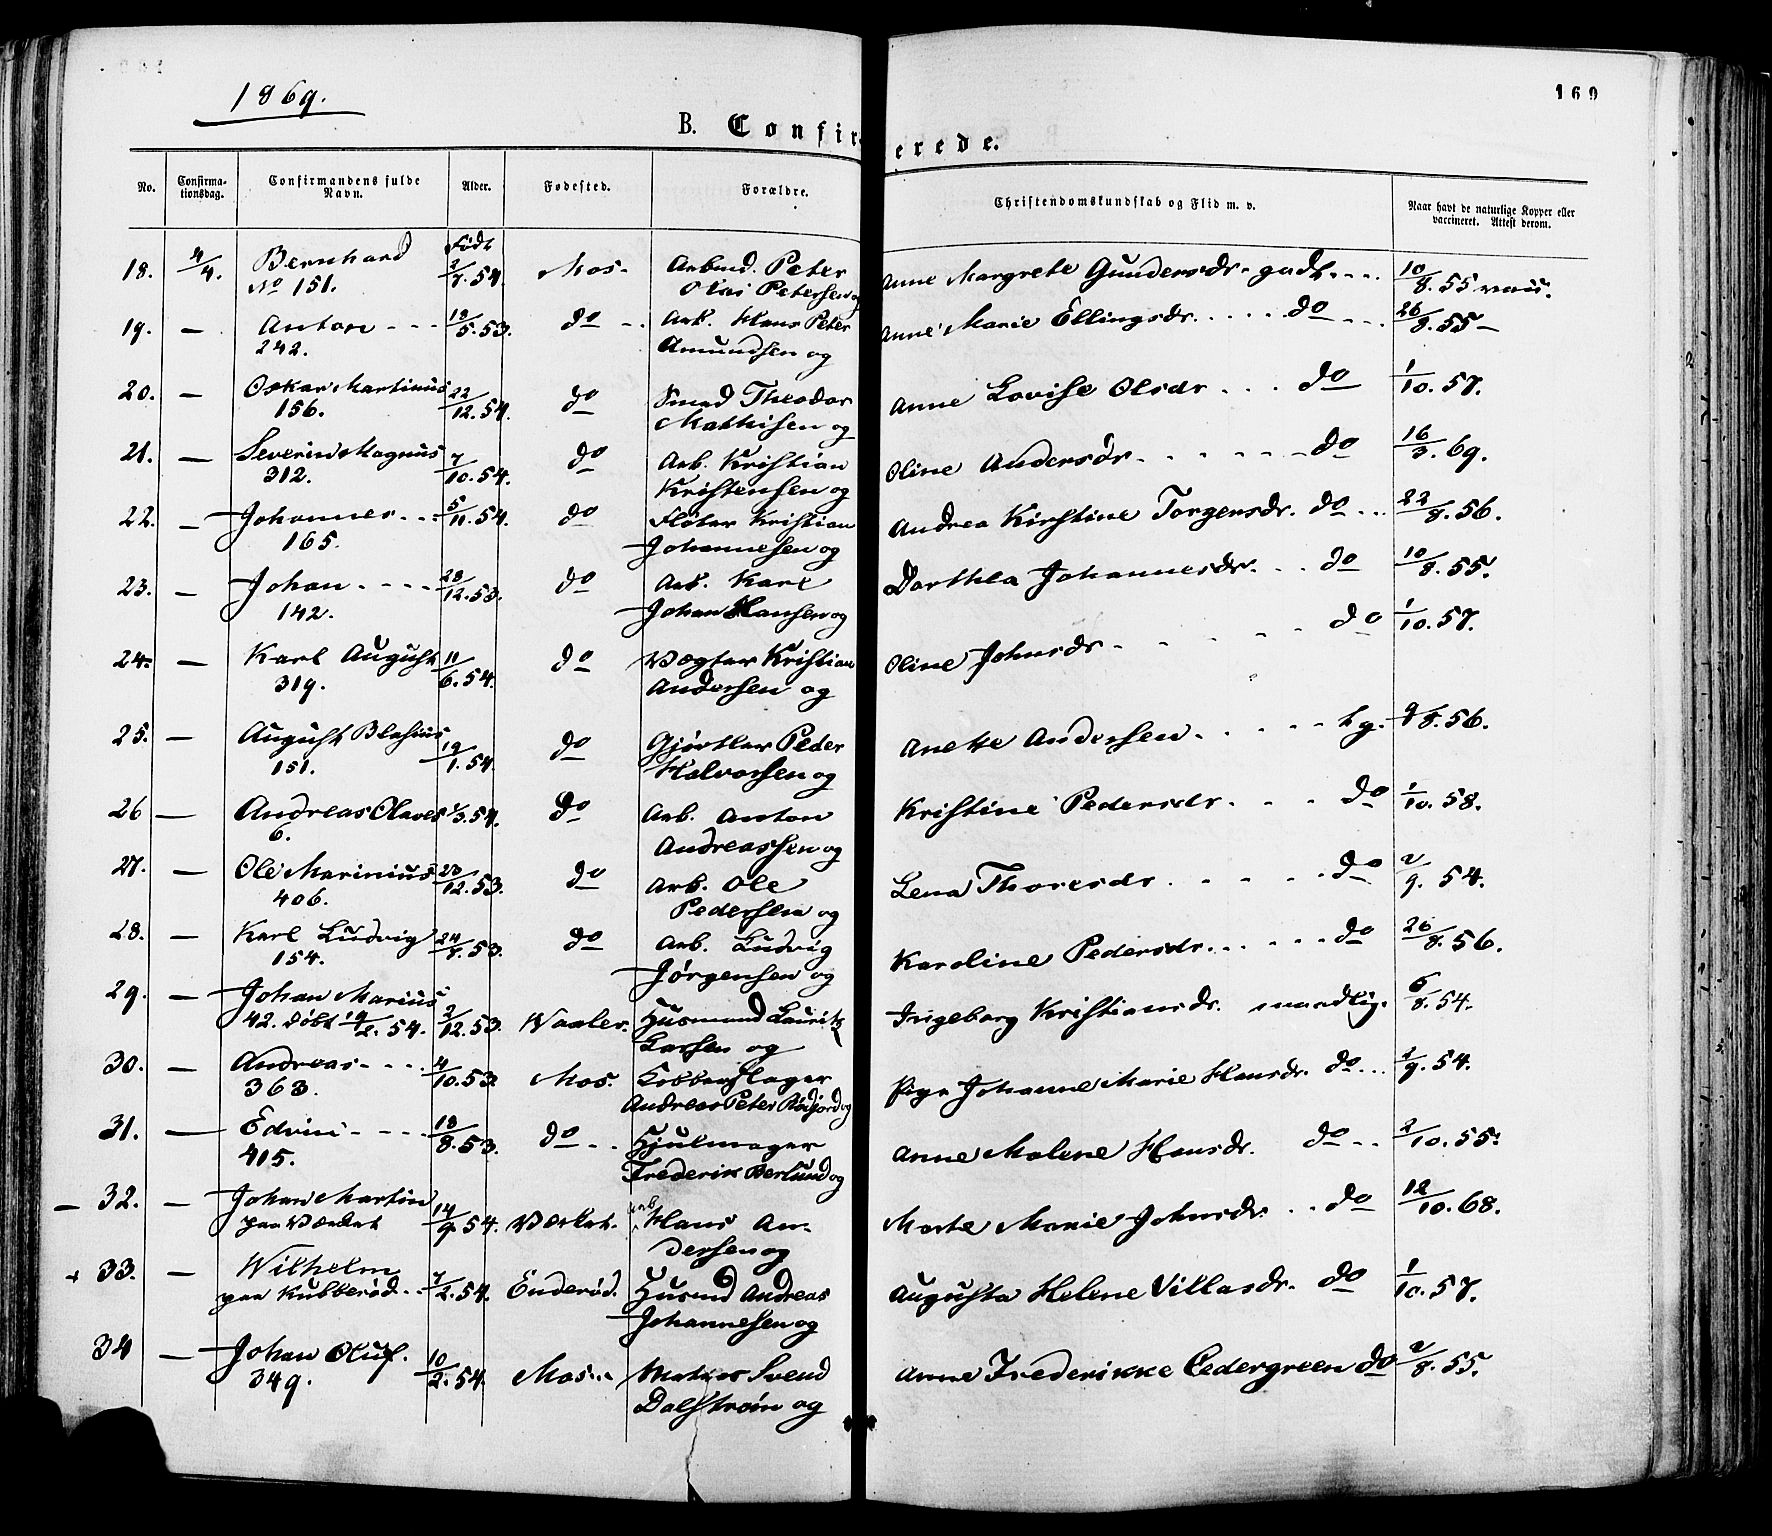 1869.
169
B. Confir erede.
No. Confirma-tionsdag. Confirmandens fulde Navn. Alder. Fødested. Forældre. Christendomskundskab og Flid m. v. Naar havt de naturlige Kopper eller vaccineret. Attest derom.
18. 4/4. Bernhard Født 2/7.54. Mos. Arbmd. Peter Anne Margrete Gundersdr. godt 10/8.55 vacc.
No 151. Petersen og
19. — Anton 18/5.53. do Arb. Hans Peter Anne Marie Ellingsdr. do 26/8.55 —
242. Amundsen og
20. — Oskar Martinus 22/12.54. do Smed Theodor Anne Lovise Olsdr do 1/10.57.
156. Mathisen og
21. — Severin Magnus 7/10.54. do Arb. Kristian Oline Andersdr do 16/3.69.
312. Kristensen og
22. — Johannes 5/11.54. do Fløter Kristian Andrea Kirstine Torgersdr. do 22/8.56.
165. Johannesen og
23. — Johan 28/12.53. do Arb. Karl Dorthea Johannesdr. do 10/8.55.
142. Johan Hansen og
24. — Karl August 11/6.54. do Vægter Kristian Oline Johnsdr do 1/10.57.
319. Andersen og
25. — August Blasius 19/1.54. do Gjørtler Peder Anette Andersen tg. 9/8.56.
151. Halvorsen og
26 — Andreas Olaves 1/3.54. do Arb. Anton Kristine Pedersdr. do 1/10.58.
6. Andreassen og
27. — Ole Marinius 20/12.53. do Arb. Ole Lena Thoresdr. do 2/9.54.
406. Pedersen og
28. — Karl Ludvig 24/8.53. do Arb. Ludvig Karoline Pedersdr. do 26/8.56.
154. Jørgensen og
29. — Johan Marius 2/12.53. Waaler. Husmand Lauritz Ingeborg Kristiansdr. maadelig. 6/8.54.
42. døbt 19/2.54. Larsen og
30. — Andreas 4/10.53. Mos. Kobberslager Pige Johanne Marie Hansdr. do 2/9.54.
363. Andreas Peter Rødfjord og
31. — Edvin 18/8.53. do Hjulmager Anne Malene Hansdr. do 2/10.55.
415. Frederik Berlund og
— 32. — Johan Martin 14/9.54. Værket. arb Hans An- Marte Marie Johnsdr. do 12/10.68.
paa Værket dersen og
+ 33. — Wilhelm 7/2.54. Enderød. Husmd Andreas Augusta Helene Villasdr. do 1/10.57.
paa Kubberød Johannesen og
34 — Johan Oluf. 10/2.54. Mos Svend Anne Frederikke Cedergreen do 2/8.55.
349. Dalstrøm og